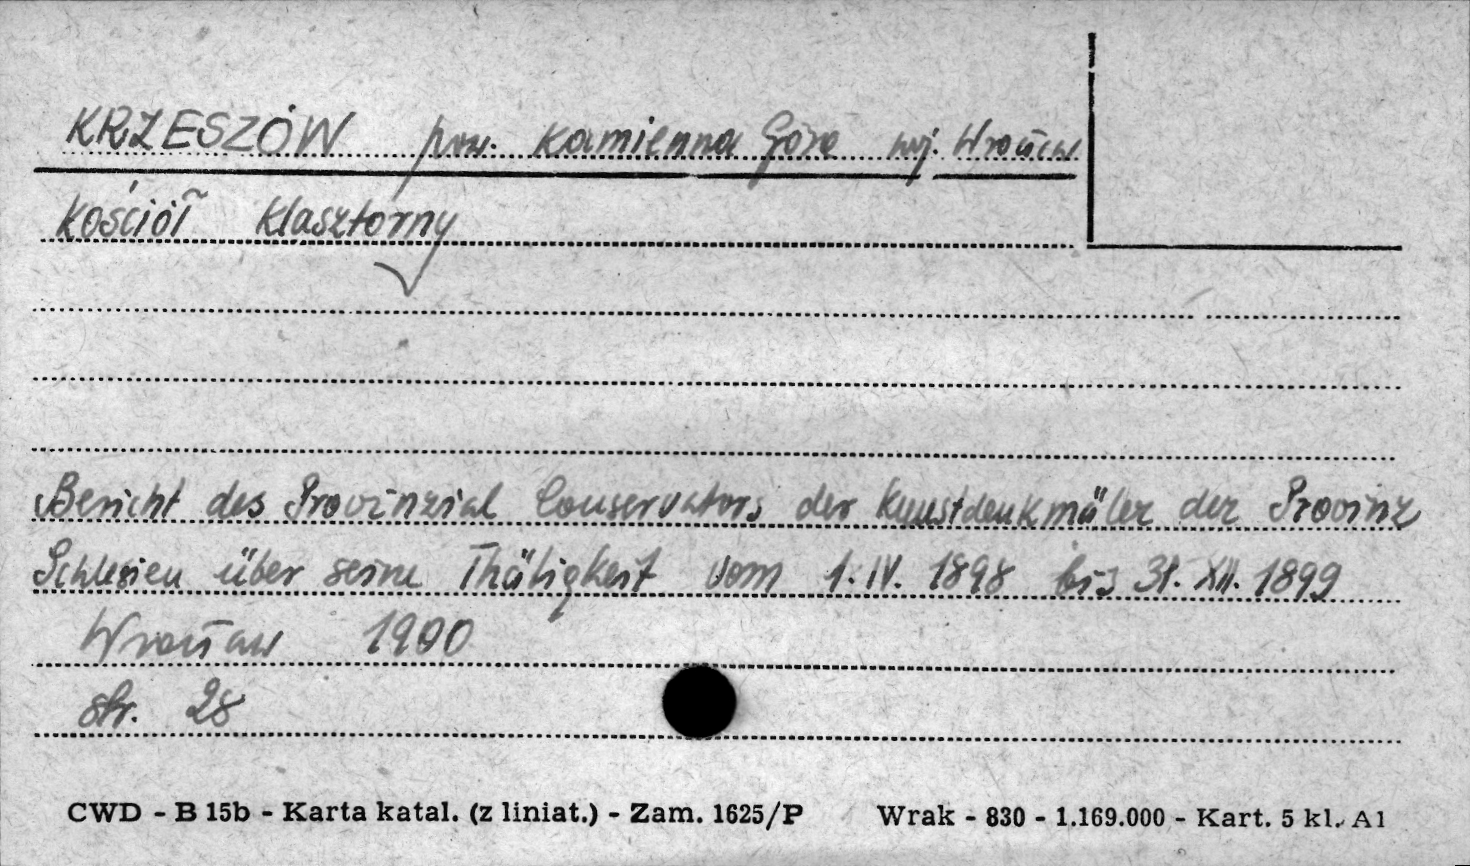 KRZESZÓW pow. Kamienna Góra woj. Wrocław
Kościół Klasztorny
Bericht des Provinzial Conservators der Kunstdenkmäler der Provinz
Schlesien über seine Thätigkeit vom 1.IV. 1898 bis 31. XII. 1899
Wrocław 1900
str. 28
CWD - B 15b - Karta katal. (z liniat.) - Zam. 1625/P Wrak - 830 - 1.169.000 - Kart. 5 kl. A1